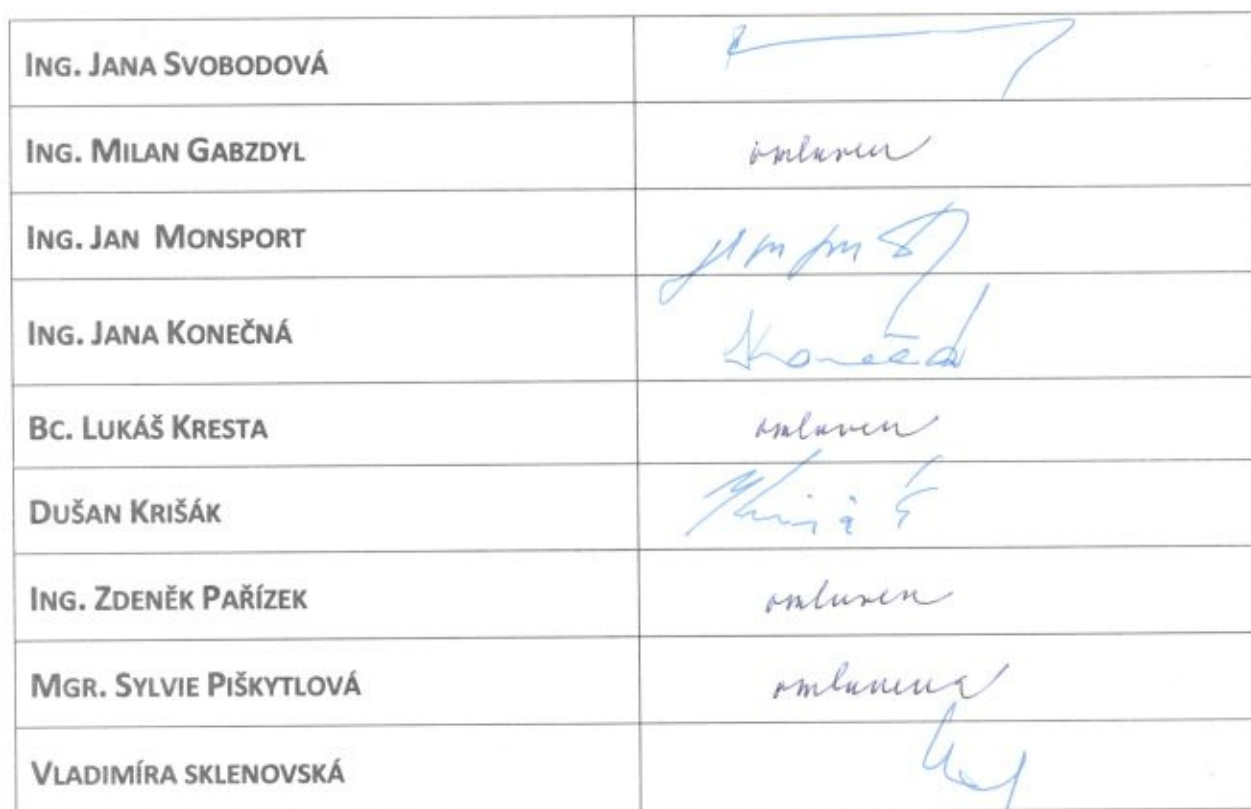 ING. JANA SVOBODOVÁ
ING. MILAN GABZDYL omluven
ING. JAN MONSPORT
ING. JANA KONEČNÁ
BC. LUKÁŠ KRESTA omluven
DUŠAN KRIŠÁK
ING. ZDENĚK PAŘÍZEK omluven
MGR. SYLVIE PIŠKYTLOVÁ omluvena
VLADIMÍRA SKLENOVSKÁ